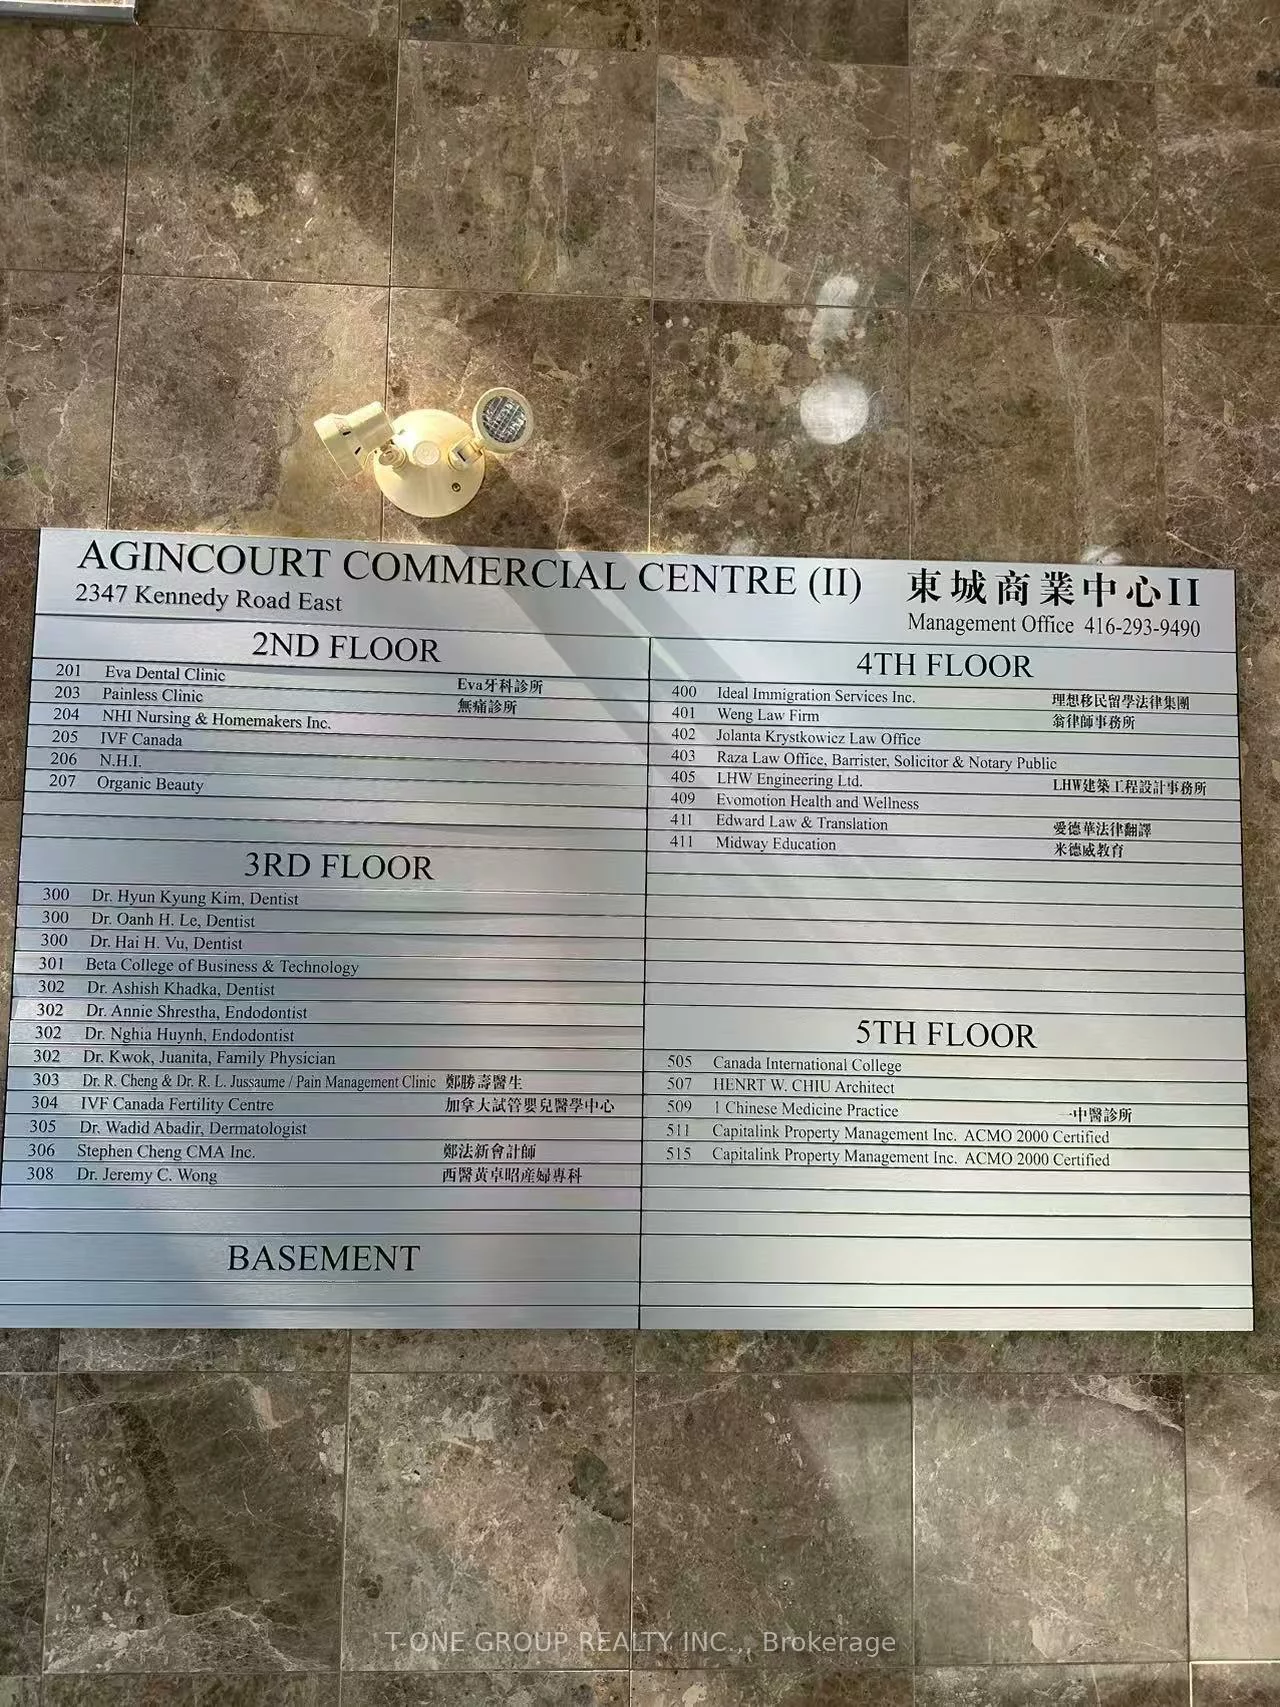 AGINCOURT COMMERCIAL CENTRE (II) 東城商業中心II
2347 Kennedy Road East
Management Office 416-293-9490
2ND FLOOR
201 Eva Dental Clinic Eva牙科診所
203 Painless Clinic 無痛診所
204 NHI Nursing & Homemakers Inc.
205 IVF Canada
206 N.H.I.
207 Organic Beauty
3RD FLOOR
300 Dr. Hyun Kyung Kim, Dentist
300 Dr. Oanh H. Le, Dentist
300 Dr. Hai H. Vu, Dentist
301 Beta College of Business & Technology
302 Dr. Ashish Khadka, Dentist
302 Dr. Annie Shrestha, Endodontist
302 Dr. Nghia Huynh, Endodontist
302 Dr. Kwok, Juanita, Family Physician
303 Dr. R. Cheng & Dr. R. L. Jussaume / Pain Management Clinic 鄭勝壽醫生
304 IVF Canada Fertility Centre 加拿大試管嬰兒醫學中心
305 Dr. Wadid Abadir, Dermatologist
306 Stephen Cheng CMA Inc. 鄭法新會計師
308 Dr. Jeremy C. Wong 西醫黃卓昭産婦專科
BASEMENT
4TH FLOOR
400 Ideal Immigration Services Inc. 理想移民留學法律集團
401 Weng Law Firm 翁律師事務所
402 Jolanta Krystkowicz Law Office
403 Raza Law Office, Barrister, Solicitor & Notary Public
405 LHW Engineering Ltd. LHW建築工程設計事務所
409 Evomotion Health and Wellness
411 Edward Law & Translation 愛德華法律翻譯
411 Midway Education 米德威教育
5TH FLOOR
505 Canada International College
507 HENRT W. CHIU Architect
509 1 Chinese Medicine Practice 一中醫診所
511 Capitalink Property Management Inc. ACMO 2000 Certified
515 Capitalink Property Management Inc. ACMO 2000 Certified
T-ONE GROUP REALTY INC.,, Brokerage